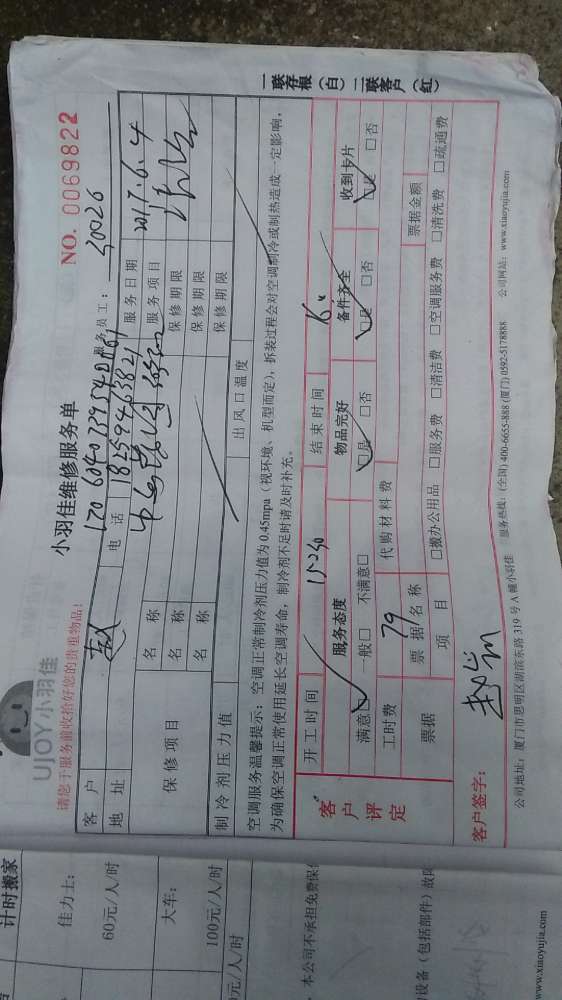 一联存根（白） 二联客户（红）
UJOY小羽佳
小羽佳维修服务单
NO. 0069822
请您于服务前收拾好您的贵重物品！
服务员工： 30026
客户 赵 电话 18259463821 服务日期 2017.6.4
地址 服务项目
保修项目 名称 保修期限
名称 保修期限
名称 保修期限
制冷剂压力值 出风口温度
空调服务温馨提示：空调正常制冷剂压力值为0.45mpa（视环境、机型而定），拆装过程会对空调制冷或制热造成一定影响，
为确保空调正常使用延长空调寿命，制冷剂不足时请及时补充。
客户评定
开工时间 15:30 结束时间
服务态度 物品完好 备件齐全 收到卡片
满意□ 一般□ 不满意□ □是 □否 □是 □否 □是 □否
工时费 79 代购材料费
票据 票据名称 票据金额
项目 □搬办公用品 □服务费 □清洁费 □空调服务费 □清洗费 □疏通费
客户签字：
公司地址：厦门市思明区湖滨东路319号A幢小羽佳 服务热线：(全国) 400-6655-888 (厦门) 0592-5178888 公司网站：www.xiaoyujia.com
计时搬家
佳力士：
60元/人/时
大车：
100元/人/时
0元/人/时
本公司不承担免费保
设备（包括部件）故
www.xiaoyujia.com